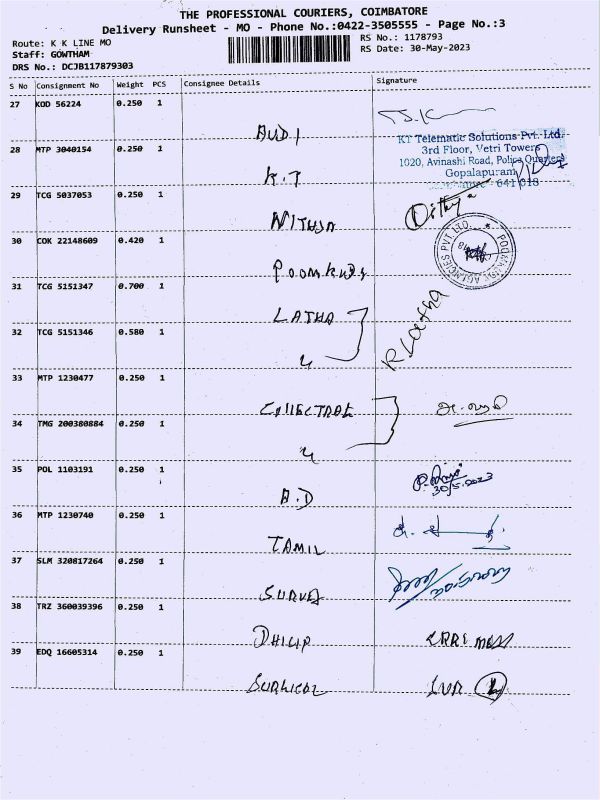 THE PROFESSIONAL COURIERS, COIMBATORE
Delivery Runsheet - MO - Phone No.:0422-3505555 - Page No.:3
Route: K K LINE MO
Staff: GOWTHAM
DRS No.: DCJB117879303
RS No.: 1178793
RS Date: 30-May-2023
S No Consignment No Weight PCS Consignee Details Signature
27 KOD 56224 0.250 1
AUDI
28 MTP 3040154 0.250 1
K.T
KT Telematic Solutions Pvt. Ltd.
3rd Floor, Vetri Towers
1020, Avinashi Road, Police Quarters
Gopalapuram
641 018
29 TCG 5037053 0.250 1
NITHYA Nithya
30 COK 22148609 0.420 1
31 TCG 5151347 0.700 1
LATHA R Latha
32 TCG 5151346 0.580 1
33 MTP 1230477 0.250 1
34 TMG 200380884 0.250 1
35 POL 1103191 0.250 1
A.D
30/5/2023
36 MTP 1230740 0.250 1
TAMIL
37 SLM 320817264 0.250 1
38 TRZ 360039396 0.250 1
PHILIP
39 EDQ 16605314 0.250 1